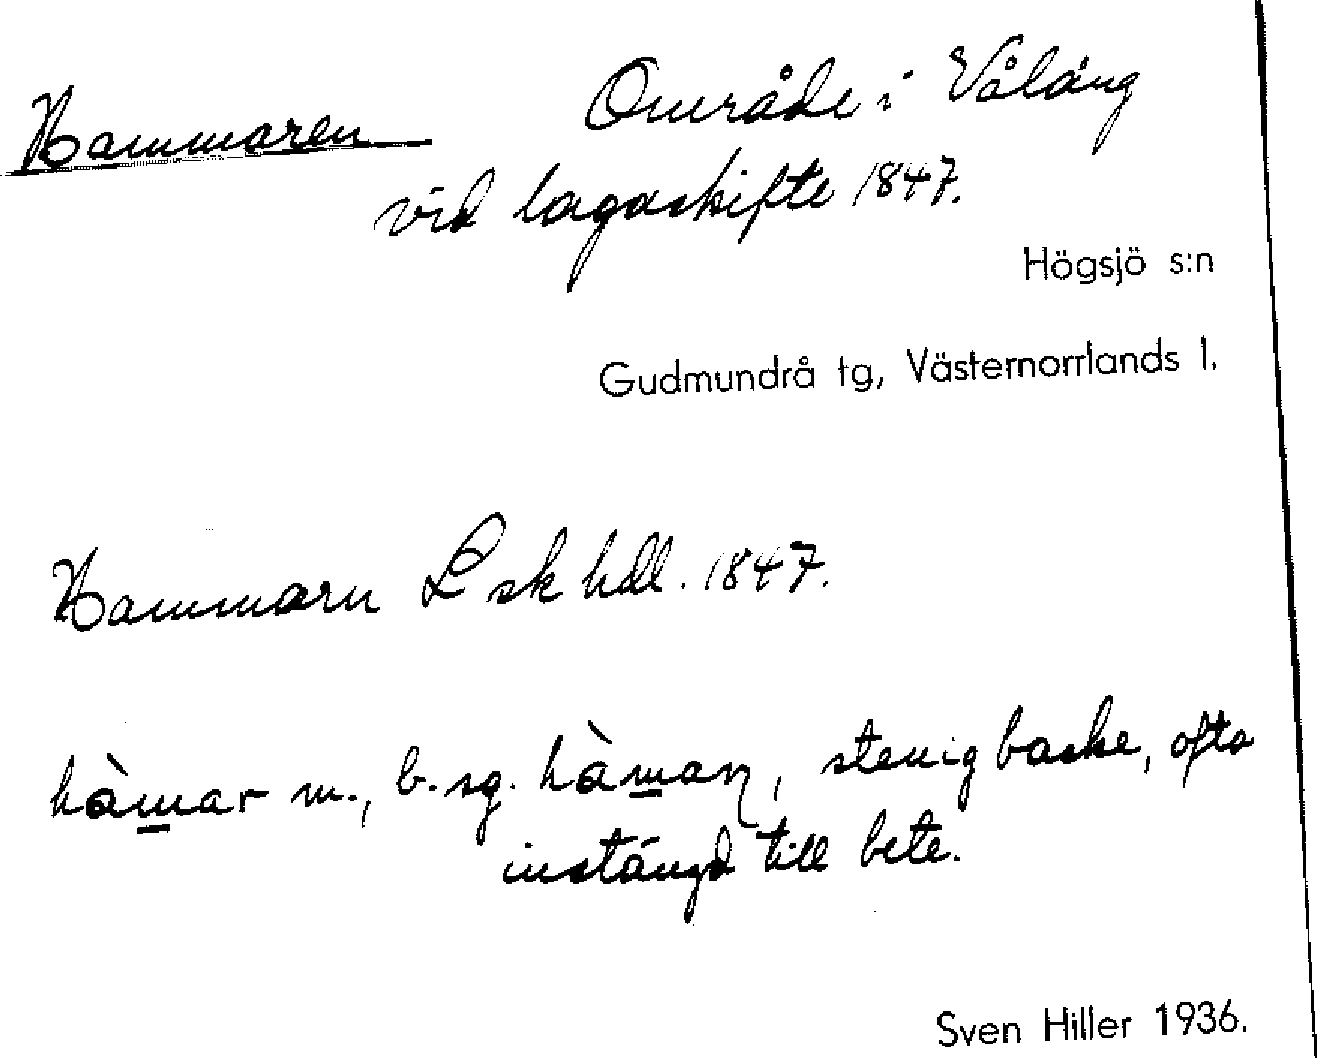 Hammaren Område i Våläng
vid lagaskifte 1847.
Högsjö s:n
Gudmundrå tg, Västernorrlands l.
Hammarn L sk hdl. 1847.
hàmar m., b. sg. hàmaɳ, stenig backe, ofta
instängd till bete.
Sven Hiller 1936.